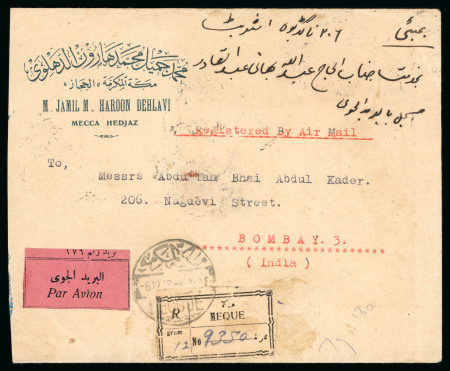 بمبئی
٢٠٦ ناگدیوی اسٹریٹ
بخدمت جناب الحاج عبد اللہ بھائی عبد القادر
محمد جميل محمد هارون الدهلوي
مكة المكرمة (الحجاز)
M. JAMIL M. HAROON DEHLAVI
MECCA HEDJAZ
Registered By Air Mail
To,
Messrs Abdullah Bhai Abdul Kader.
206. Nagdevi Street.
BOMBAY. 3.
( India )
بريد رقم ١٧٦
البريد الجوى
Par Avion
R
MEQUE
gram
12
No 9350